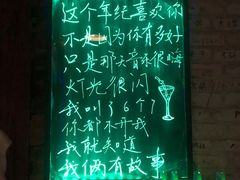 这个年纪喜欢你
不是因为你有多好
只是那天音乐很嗨
灯光很闪
我叫3677
你都不开我
我就知道
我俩有故事